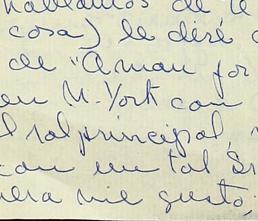 hablamos de te
cosa) le diré
de "A man for
en N. York con
rol principal,
con un tal Sr
me gustó,